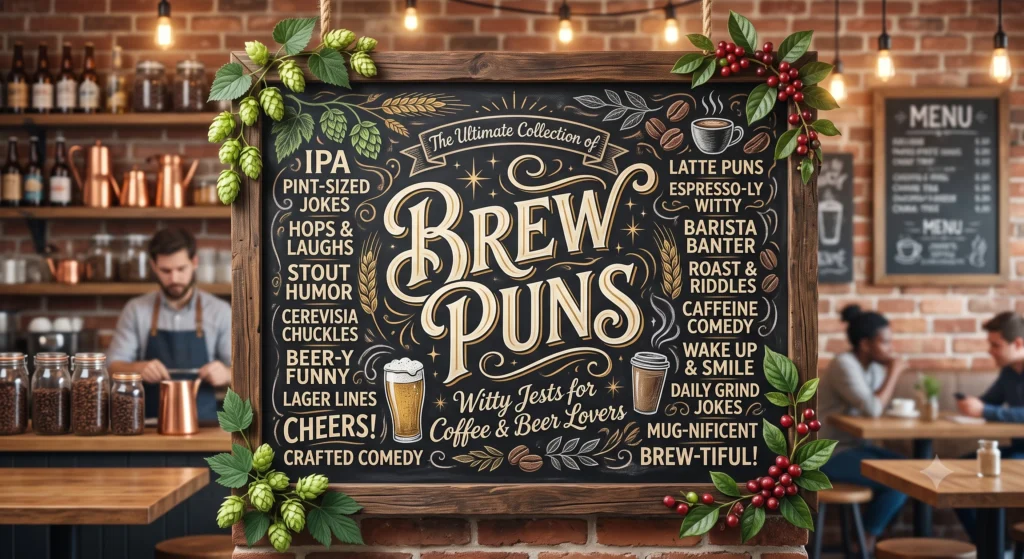 The Ultimate Collection of
BREW
PUNS
Witty Jests for
Coffee & Beer Lovers
IPA
PINT-SIZED
JOKES
HOPS &
LAUGHS
STOUT
HUMOR
CEREVISIA
CHUCKLES
BEER-Y
FUNNY
LAGER LINES
CHEERS!
CRAFTED COMEDY
LATTE PUNS
ESPRESSO-LY
WITTY
BARISTA
BANTER
ROAST &
RIDDLES
CAFFEINE
COMEDY
WAKE UP
& SMILE
DAILY GRIND
JOKES
MUG-NIFICENT
BREW-TIFUL!
MENU
MENU